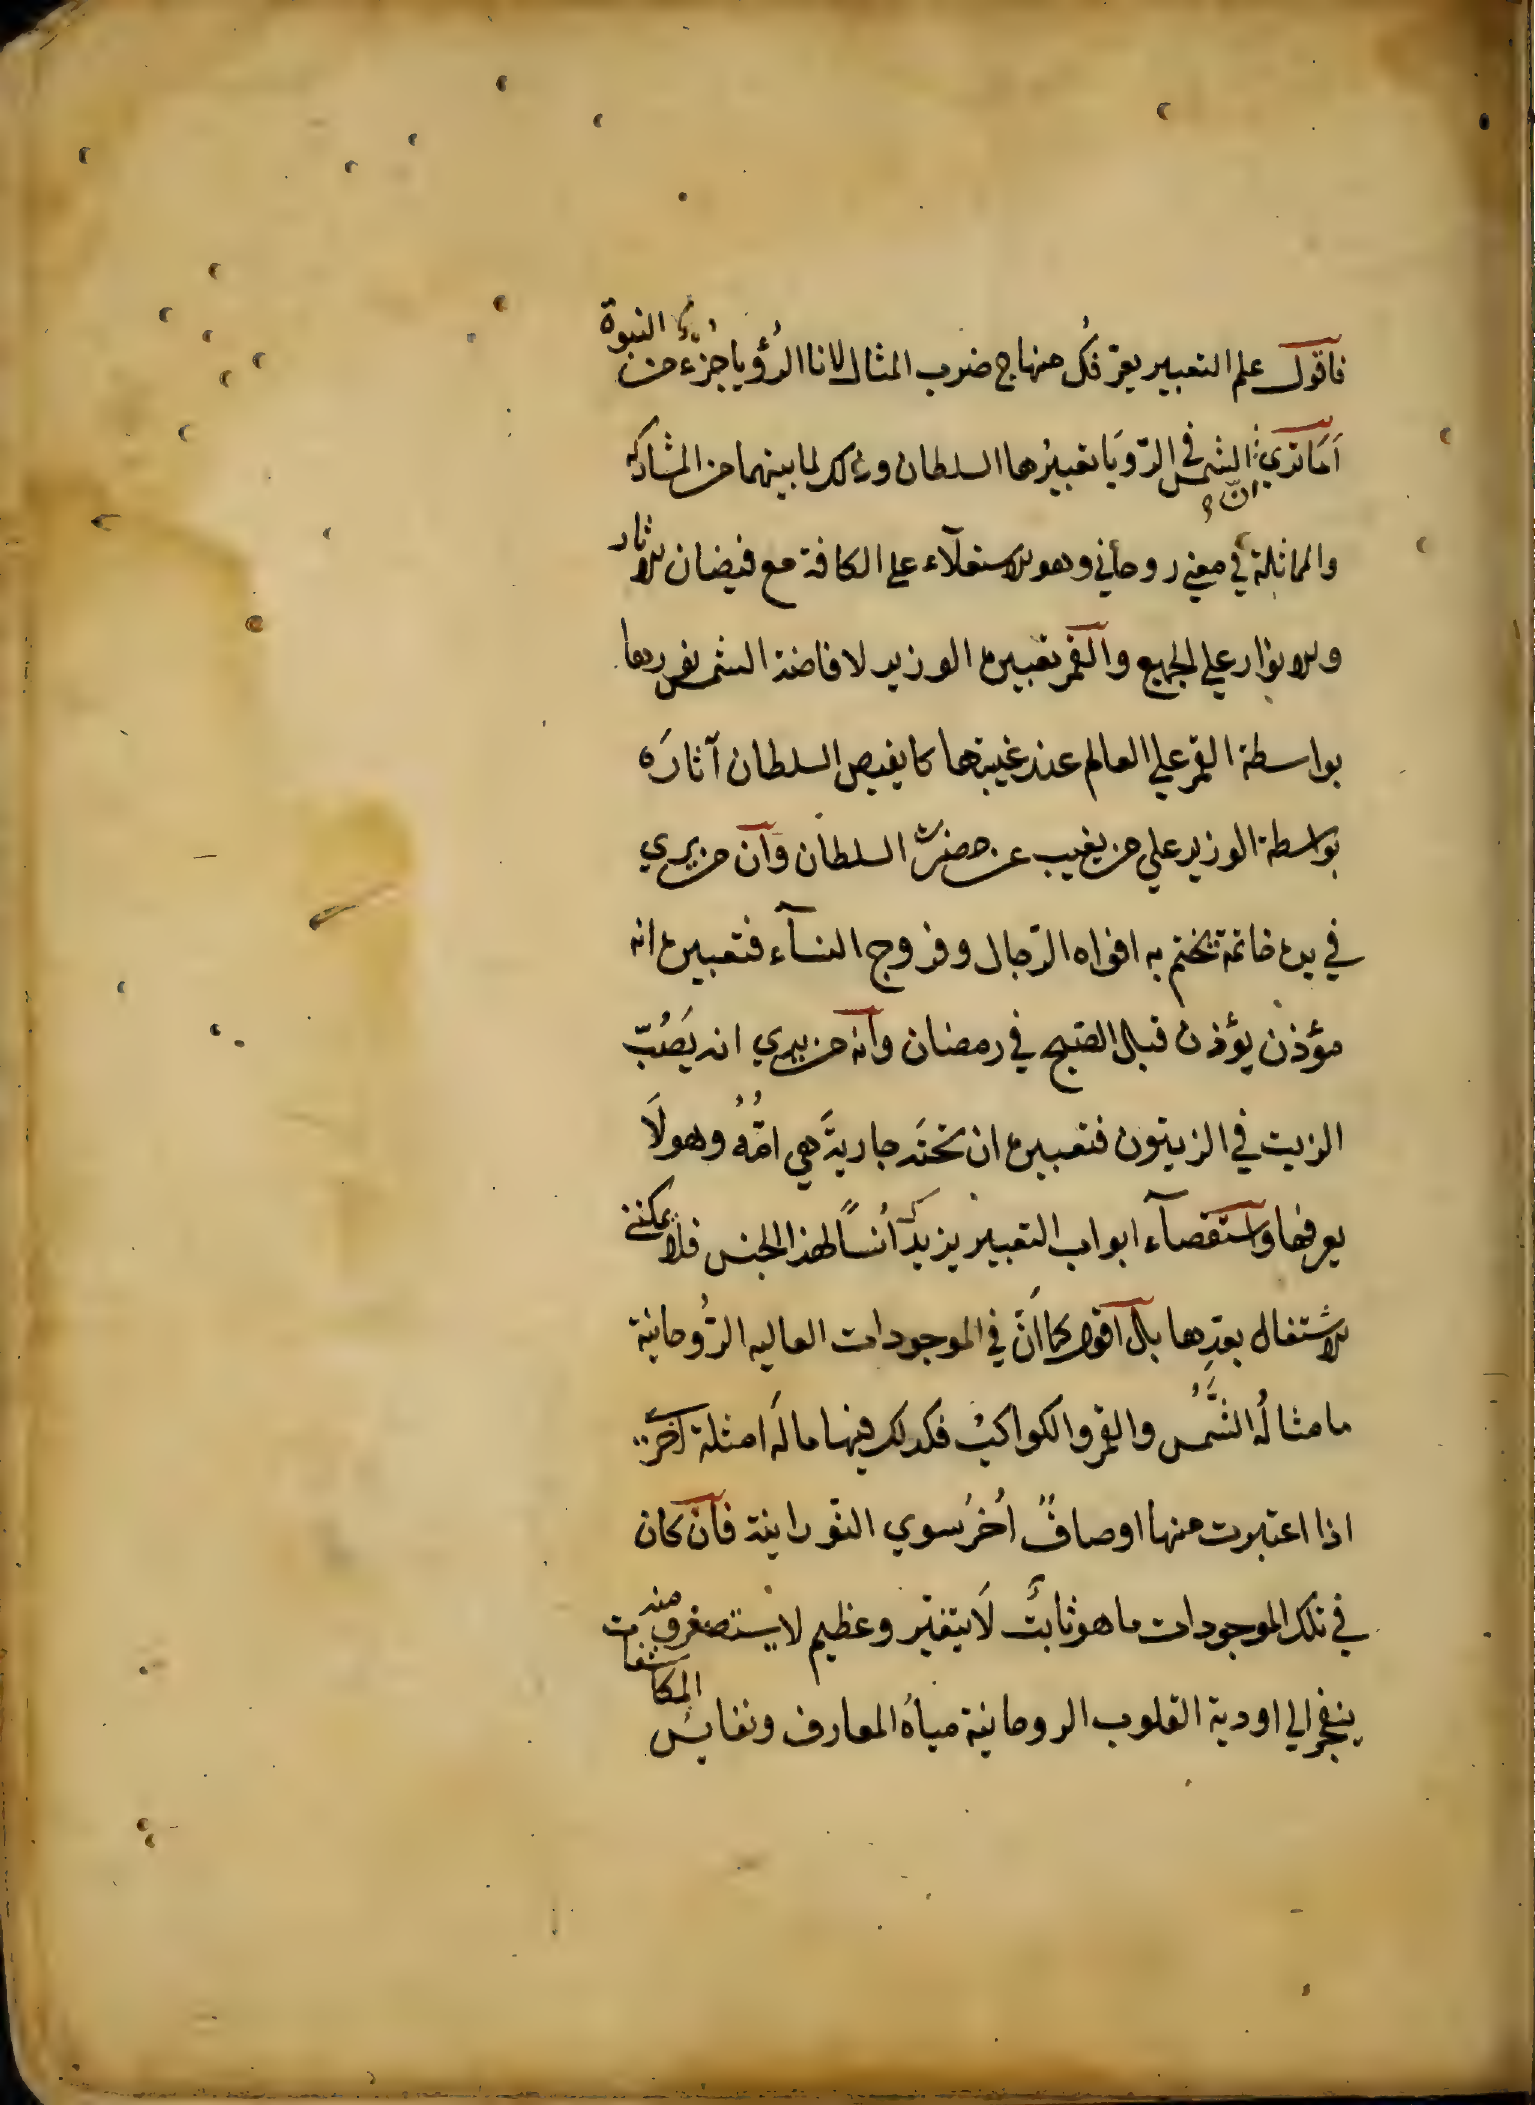 فاقول علم التعبير يعرّفك منهاج ضرب المثال لانا الرُؤيا جُزءٌ من النبوة
اَمَا تري انّ الشمس في الرّويَا تعبيرُها السلطان وذلك لما بينهما من المشاركة
والمماثلة في معني روحاني وهو الاستعلآء علي الكافة مع فيضان الاثار
والانوار علي الجميع والقمر تعبيره الوزير لافاضة الشمس نورها
بواسطة القمر علي العالم عند غيبتها كما يفيض السلطان آثارَه
بواسطة الوزير علي من يغيب عن حضرت السلطان وان من يري
في يده خاتمة يختم به افواه الرّجال وفروج النسآء فتعبيره انه
مؤذن يؤذن قبل الصّبح في رمضان وانه من يري انه يَصُبّ
الزيت في الزيتون فتعبيره ان تحتَه جاريةً هي امّهُ وهو لَا
يعرفها واستقصآء ابواب التعبير يزيدك اُنسًا لهذا الجنس فلا يمكنني
الاشتغال بعدّها بل اقول كما انّ في الموجودات العاليه الرُّوحانية
ما مثالُه الشَّمُس والقمر والكواكب فكذلك فيها ما لَه امثلة اخري
اذا اعتبرت منها اوصافٌ اُخرُ سوي النّورانية فان كان
في تلك الموجودات ما هو ثابتٌ لَا يتغيّر وعظيم لا يستصغر ومنه
ينفجر الي اودية القلوب الروحانية مياهُ المعارف ونفايسُ المكاشفات